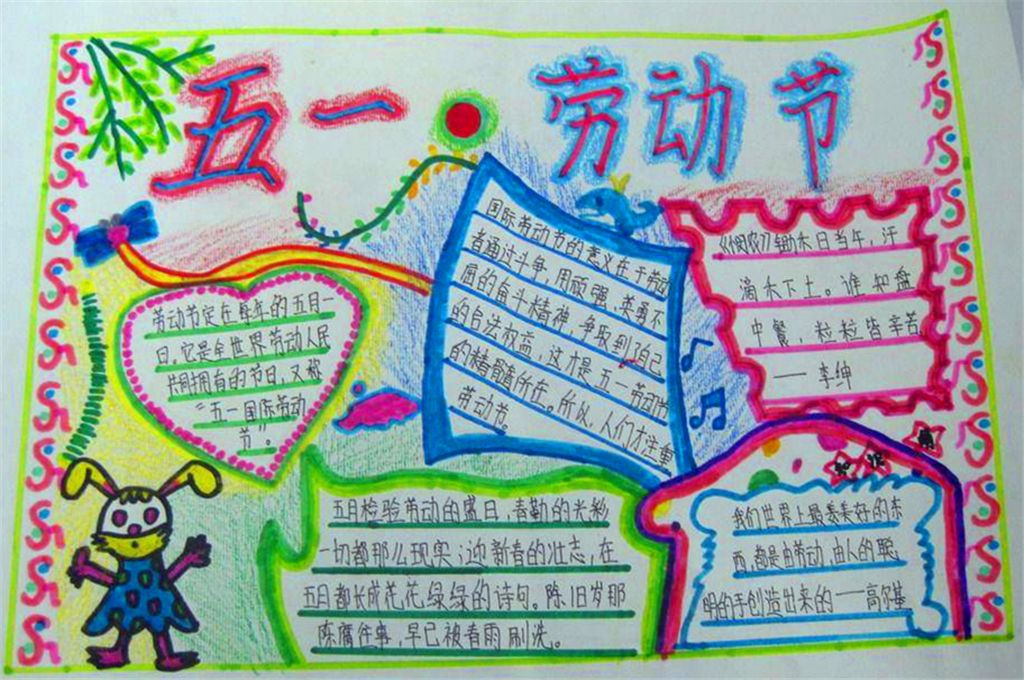 五一·劳动节
劳动节定在每年的五月一
日。它是全世界劳动人民
共同拥有的节日，又被
“五一国际劳动
节”。
国际劳动节的意义在于劳动
者通过斗争，用顽强、英勇不
屈的奋斗精神，争取到了自己
的合法权益，这才是五一劳动节
的精髓所在。所以，人们才注重
劳动节。
《悯农》锄禾日当午，汗
滴禾下土。谁知盘
中餐，粒粒皆辛苦
——李绅
五月检验劳动的盛日，春勤的光彩
一切都那么现实；迎新春的壮志，在
五月都长成花花绿绿的诗句。陈旧岁那
陈腐往事，早已被春雨刷洗。
知识
我们世界上最美好的东
西，都是由劳动，由人的聪
明的手创造出来的——高尔基